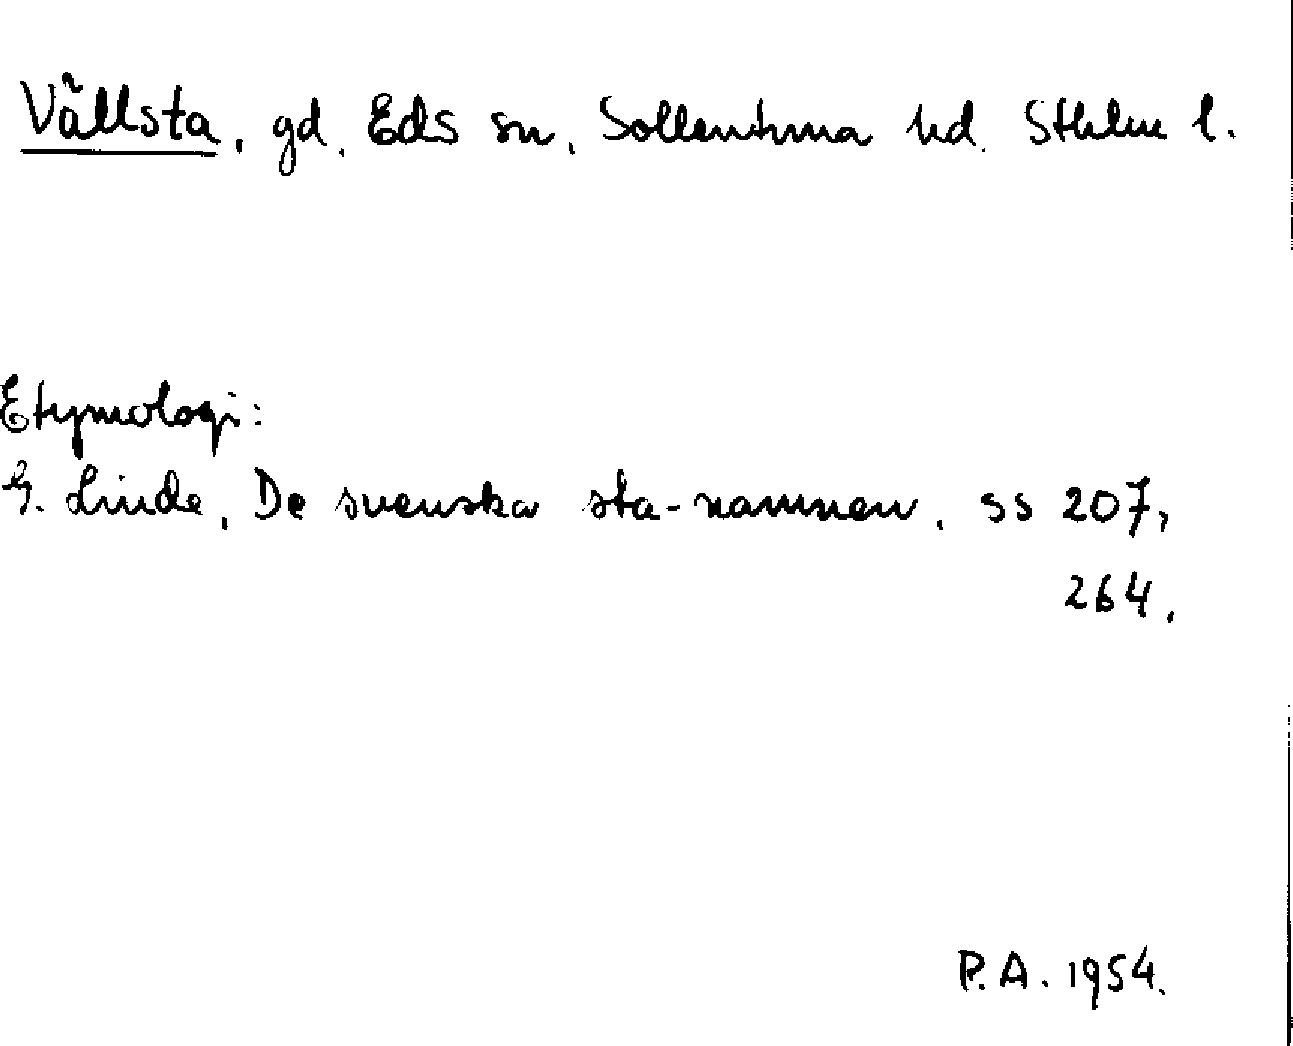 Vällsta, gd. Eds sn, Sollentuna hd. Sthlm l.
Etymologi:
G. Linde, De svenska sta-namnen, ss 207,
264.
P.A. 1954.